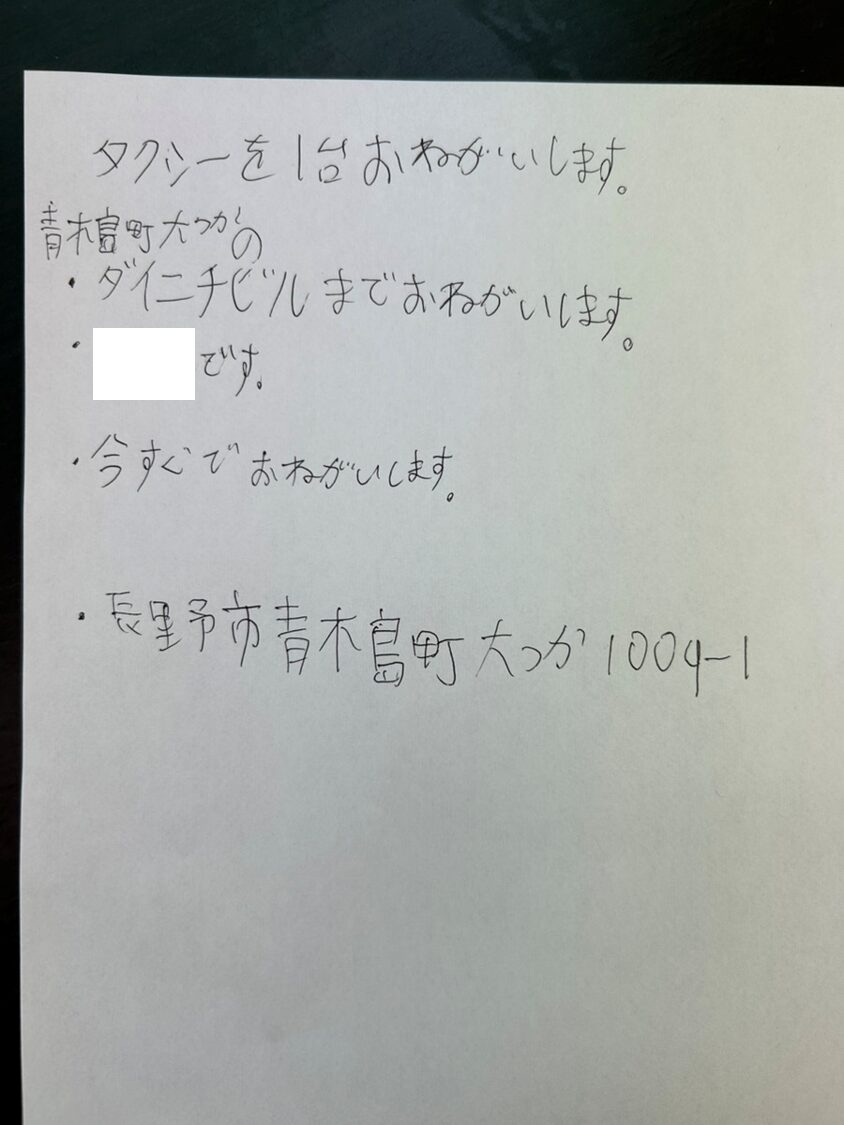 タクシーを1台おねがいします。
青木島町大つかの
・ダイニチビルまでおねがいします。
・です。
・今すぐでおねがいします。
・長野市青木島町大つか1009-1